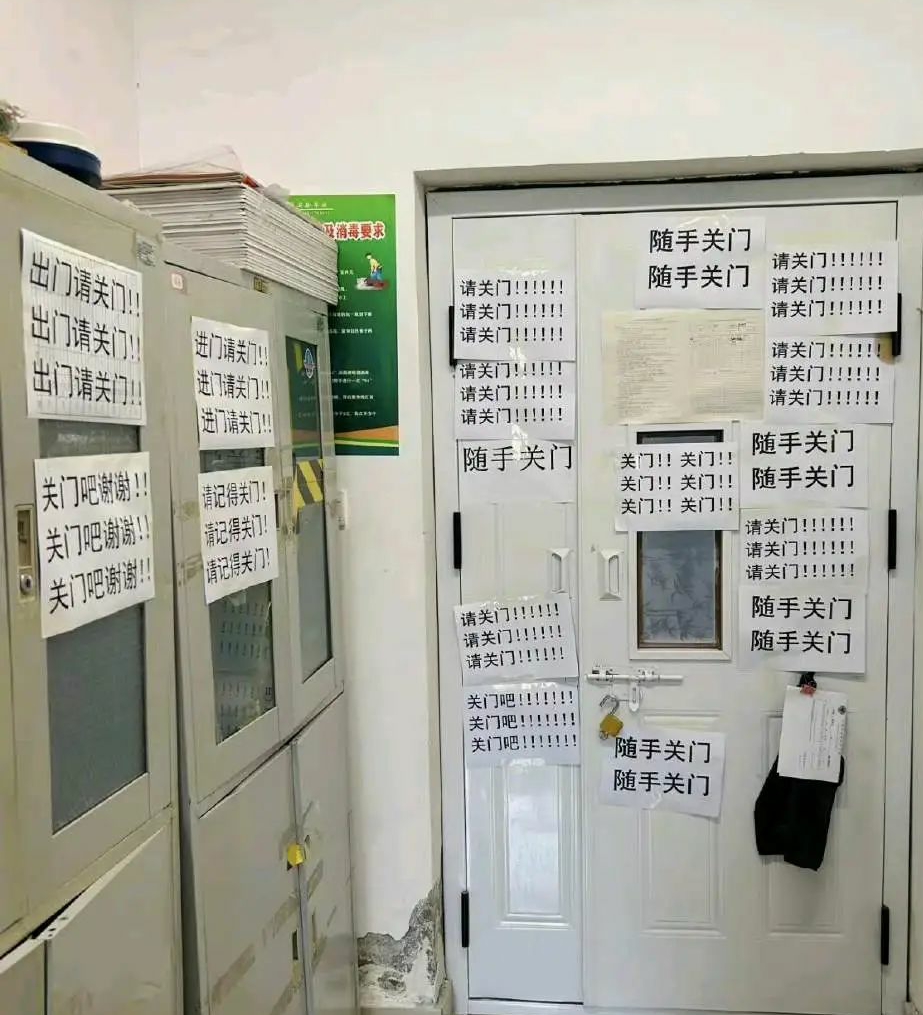 出门请关门!!
出门请关门!!
出门请关门!!
关门吧谢谢!!
关门吧谢谢!!
关门吧谢谢!!
进门请关门!!
进门请关门!!
进门请关门!!
请记得关门!
请记得关门!
请记得关门!
及消毒要求
请关门!!!!!!
请关门!!!!!!
请关门!!!!!!
请关门!!!!!!
请关门!!!!!!
请关门!!!!!!
随手关门
请关门!!!!!!
请关门!!!!!!
请关门!!!!!!
关门吧!!!!!!!
关门吧!!!!!!!
关门吧!!!!!!!
随手关门
随手关门
关门!! 关门!!
关门!! 关门!!
关门!! 关门!!
随手关门
随手关门
请关门!!!!!!
请关门!!!!!!
请关门!!!!!!
请关门!!!!!!
请关门!!!!!!
请关门!!!!!!
随手关门
随手关门
请关门!!!!!!
请关门!!!!!!
请关门!!!!!!
随手关门
随手关门